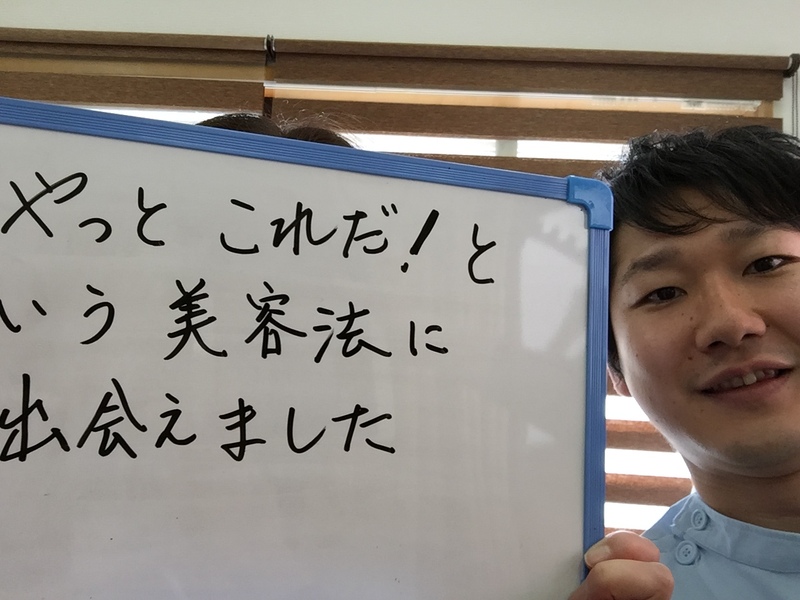 やっと これだ！と
いう 美容法に
出会えました